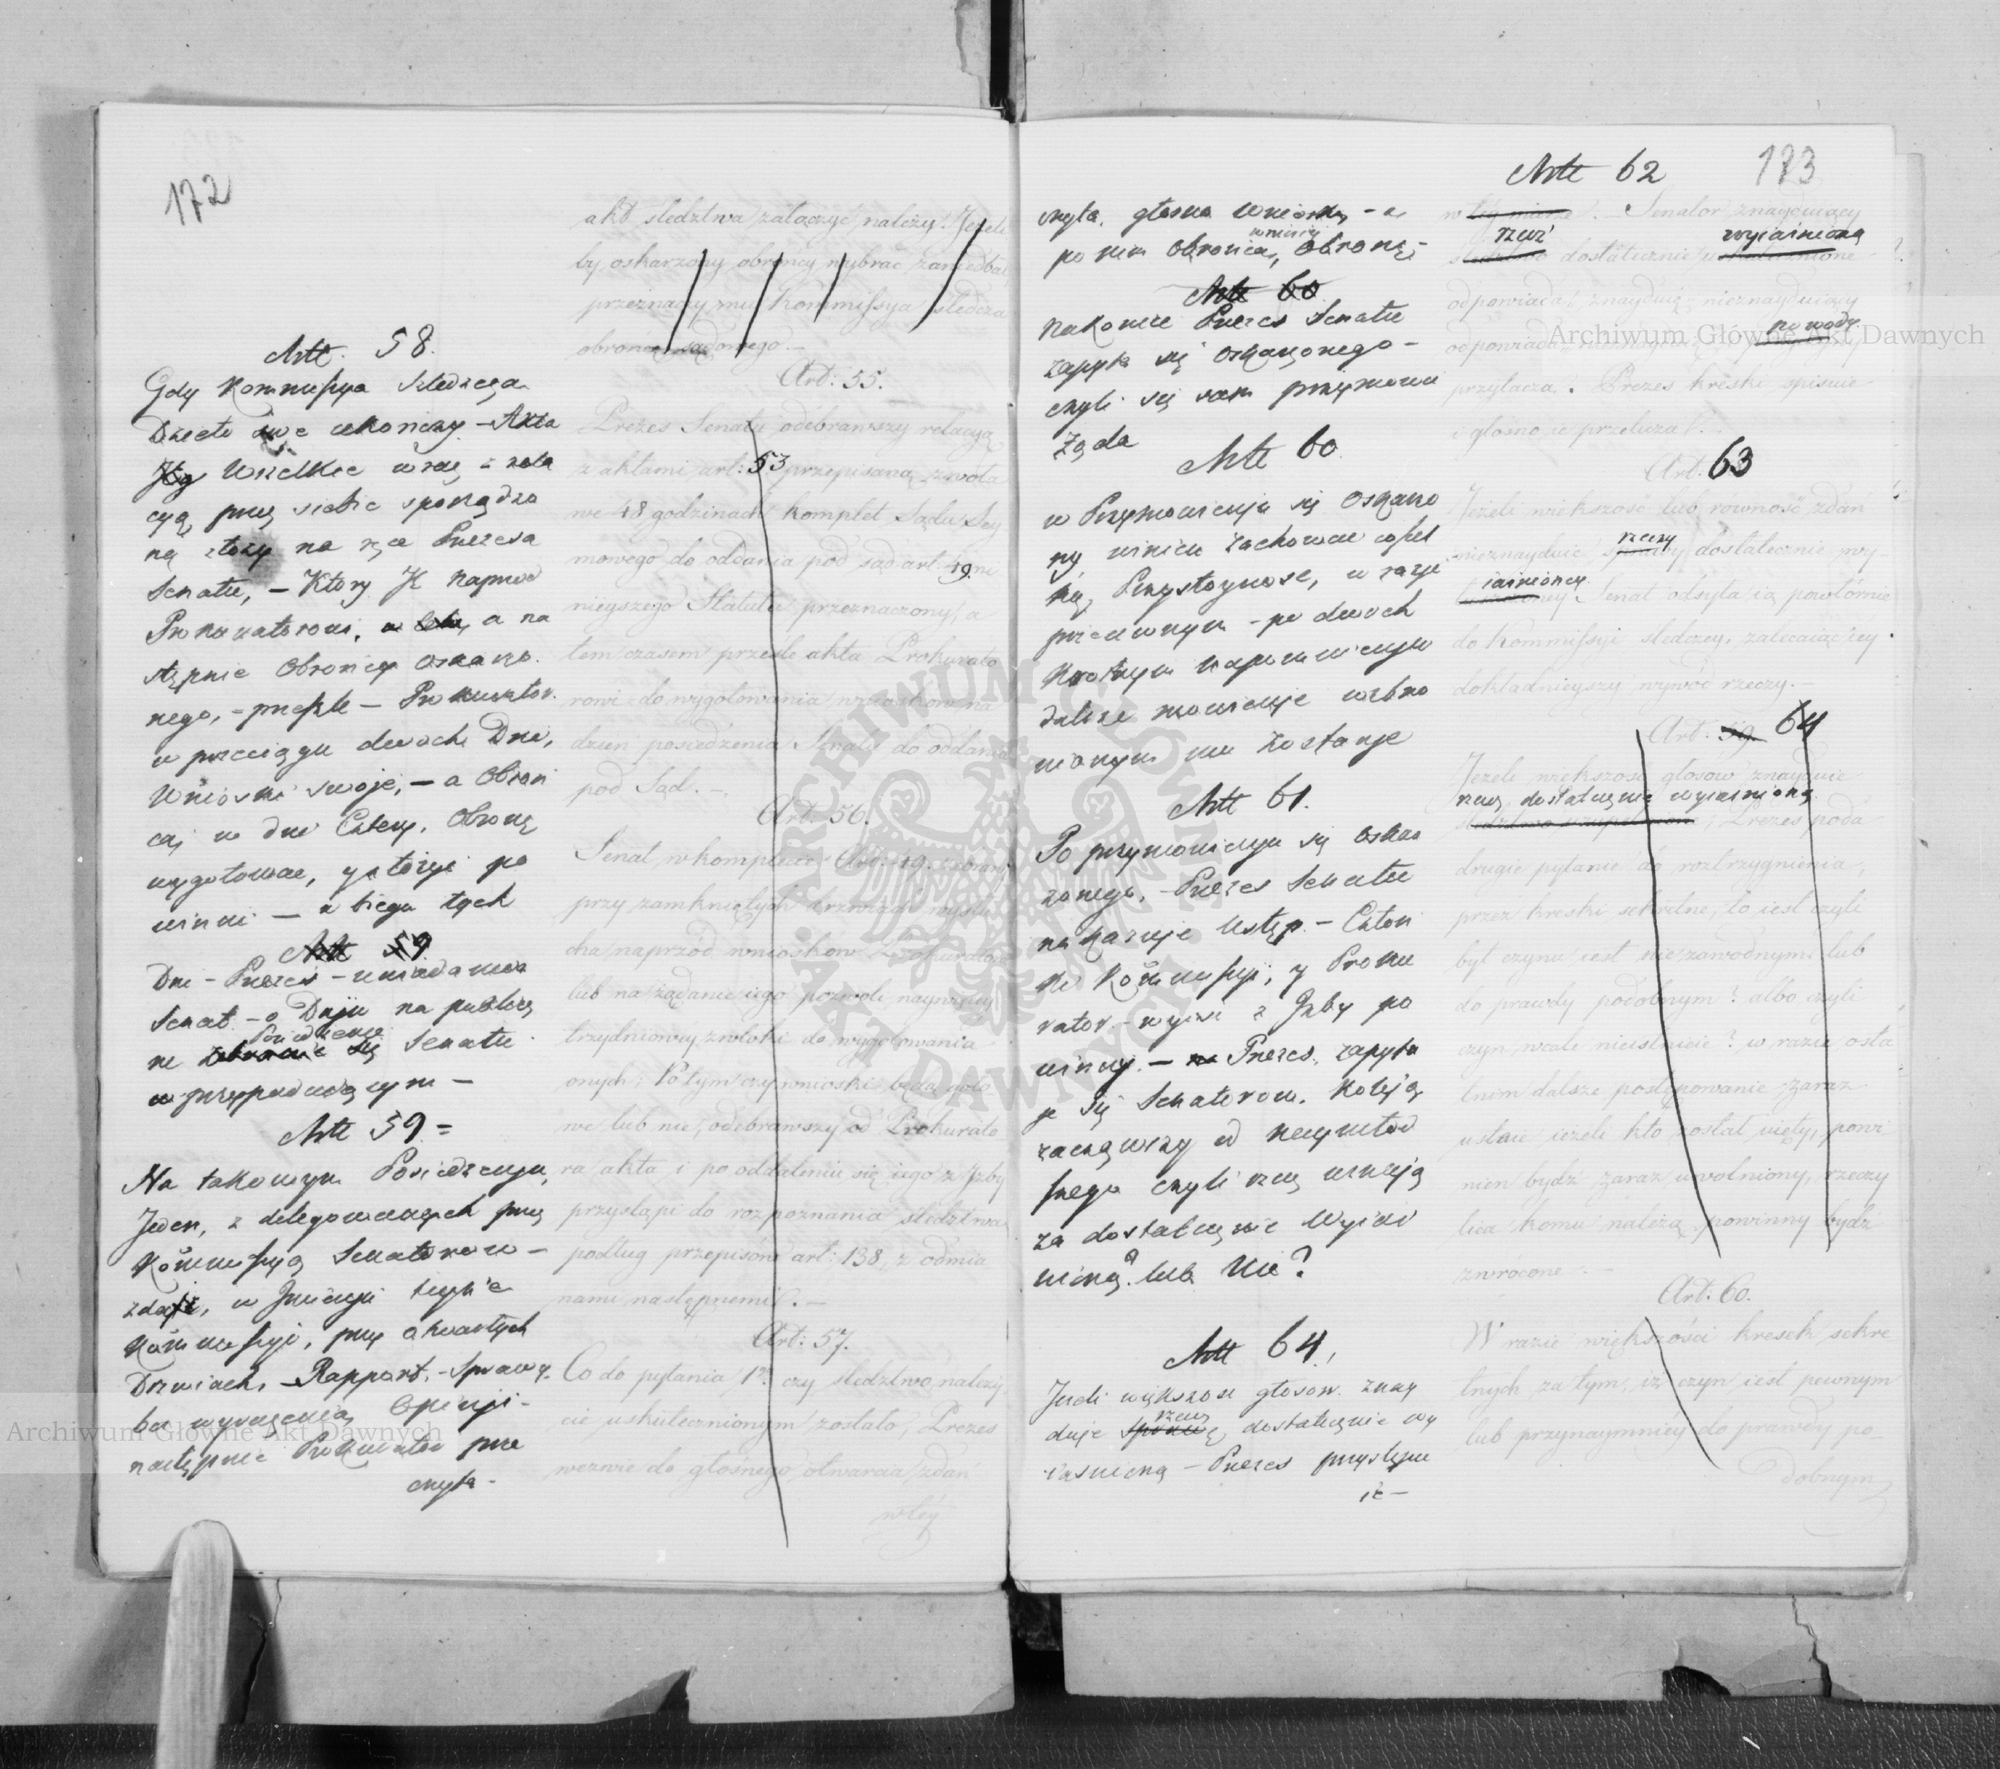 172
Artt. 58.
Gdy Kommissya Sledcza
Dzieło swe ukończy – Akta
Wszelkie wraz z rela
cyą przez siebie sporządzo
ną złoży na ręce Prezesa
Senatu, – Ktory Je naprzod
Prokuratorowi, a na
stępnie Obroncy oskarżo.
nego, – przeszle – Prokurator.
w przeciągu dwoch Dni,
Wnioski swoje, – a Obroń
ca, w dni Cztery, Obronę
wygotować, y złożyć po
winni – z biegu tych
Artt 59
Dni – Prezes – uwiadamia
Senat – o Dniu na publicz
ne Posiedzenie Senatu
przypadaiącym –
Artt 59 =
Na takowym Posiedzeniu,
Jeden, z delegowanych przez
Kommissyą Senatorow –
zdaie, w Jmieniu teyże
Kommissyi, przy otwartych
Drzwiach, – Rapport, – Sprawy,
bez wyrażenia Opinji –
następnie Prokurator prze
czyta –
akt śledztwa załączyć należy. Jeżeli
by oskarżony obrońcy wybrać zaniedbał
przeznaczy mu Kommissya śledcza
obrońcę sądowego. –
Art: 55.
Prezes Senatu odebrawszy relacyą
z aktami art: 53 przepisaną zwoła
we 48 godzinach komplet Sądu Sey
mowego do oddania pod sąd art: 19. ni
nieyszego Statutu przeznaczony, a
tem czasem prześle akta Prokurato
rowi do wygotowania wniosków na
dzień posiedzenia Senatu do oddania
pod Sąd. –
Art: 56.
Senat w komplecie Art: 19. zebrany
przy zamkniętych drzwiach wysłu
cha naprzód wniosków Prokuratora
lub na żądanie iego pozwoli naywięcey
trzydniowey zwłoki do wygotowania
onych; Potym czy wnioski będą goto
we lub nie, odebrawszy od Prokurato
ra akta i po oddaleniu się iego z Jzby
przystąpi do rozpoznania śledztwa
podług przepisów art: 138, z odmia
nami następnemi. –
Art: 57.
Co do pytania 1º czy śledztwo należy
cie uskutecznionym zostało, Prezes
wezwie do głośnego otwarcia zdań
w tey
173
czyta, głosno Wnioski – a
po nim Obrońca, wniesie Obronę,
Artt 60
Nakoniec Prezes Senatu
zapyta się Oskarżonego –
czyli się sam przymowić
żąda
Artt 60
w Przymowieniu się Oskarżo
ny winien zachować wszel
ką Przystoyność, w razie
przeciwnym – po dwoch
Krotnym napomnieniu
dalsze mowienie wzbro
nionym mu zostanie
Artt 61.
Po przymowieniu się Oskar
żonego, – Prezes Senatu
nakazuje Ustęp – Człon
ki Kommissyi, y Proku
rator – wyiść z Jzby po
winny. – Prezes, zapyta
je się Senatorow. Koleją
zacząwszy od naymłod
szego czyli rzecz uznają
za dostatecznie Wyiaś
nioną? lub Nie?
Artt 64.
Jeżeli większość głosow. znay
duje rzecz, dostatecznie wy
iasnioną – Prezes przystępu
ie –
Artt 62
w tey mierze. Senator znayduiący
rzecz dostatecznie wyiaśnioną
odpowiada: znayduię – nieznayduiący
odpowiada powody
przytacza. Prezes kreski spisuie
i głosno ie przeliczat.
Art. 63
Jeżeli większość lub rowność zdań
nieznayduie rzeczy dostatecznie wy-
iaśnioney, Senat odsyła ią powtórnie
do Kommissyi śledczey, zalecaiąc iey
dokładnieyszy wywód rzeczy. –
Art. 59. 64
Jeżeli większość głosow znayduie
rzecz dostatecznie wyiasnioną
śledztwo uzupełnione, Prezes poda
drugie pytanie do roztrzygnienia,
przez kreski sekretne, to iest czyli
byt czynu iest niezawodnym lub
do prawdy podobnym? albo czyli
czyn wcale nieistnieie? w razie osta
tnim dalsze postępowanie zaraz
ustaie, ieżeli kto został uięty, powi
nien bydź zaraz uwolniony, rzeczy
zwrócone. –
Art: 60.
W razie większości kresek sekre
tnych za tym, iż czyn iest pewnym
lub przynaymniey do prawdy po-
dobnym
Archiwum Główne Akt Dawnych
Archiwum Główne Akt Dawnych
ARCHIWUM GŁÓWNE AKT DAWNYCH